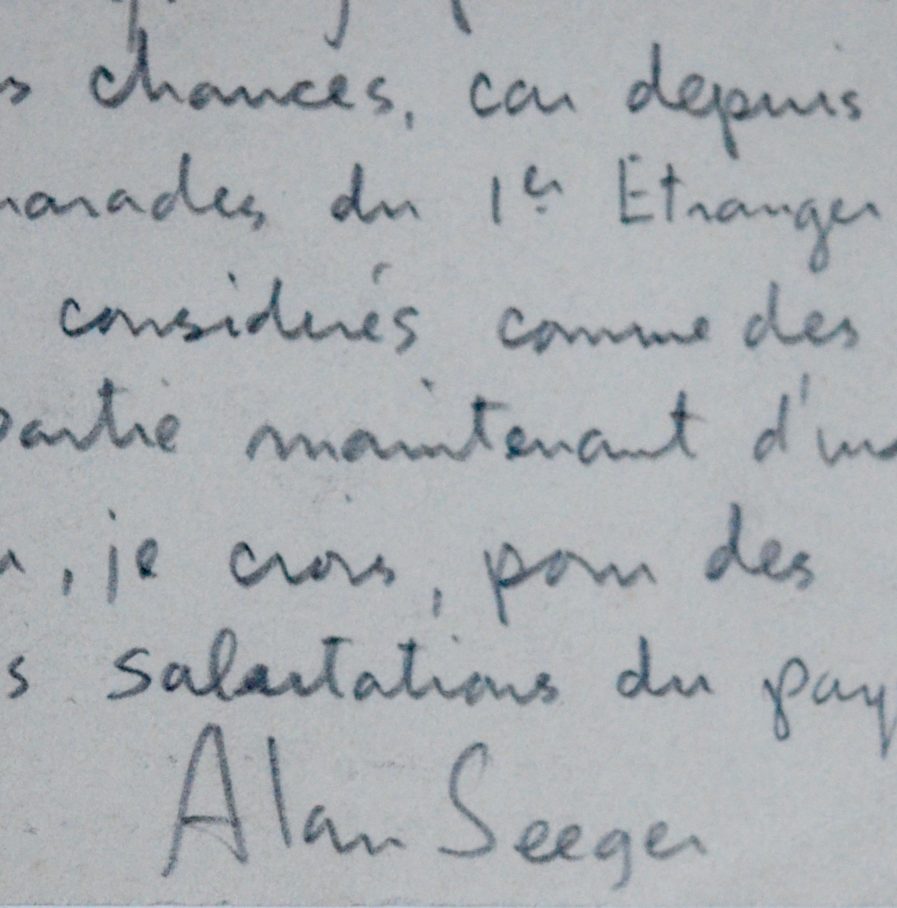 s chances, car depuis
marades du 1er Etranger
considerés comme des
partie maintenant d'un
, je crois, pour des
s salutations du pay
Alan Seeger